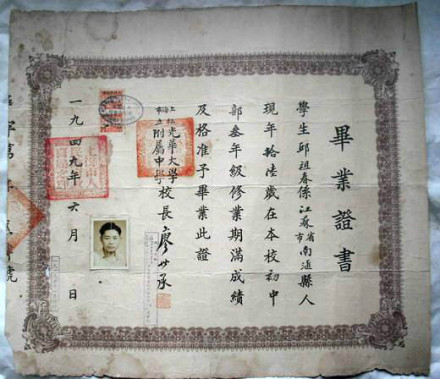 畢業證書
學生邱祖春係江蘇省市南滙縣人
現年拾陸歲在本校初中
部叁年級修業期滿成績
及格准予畢業此證
光華大學
附屬中學校長廖世承
一九四九年六月 日